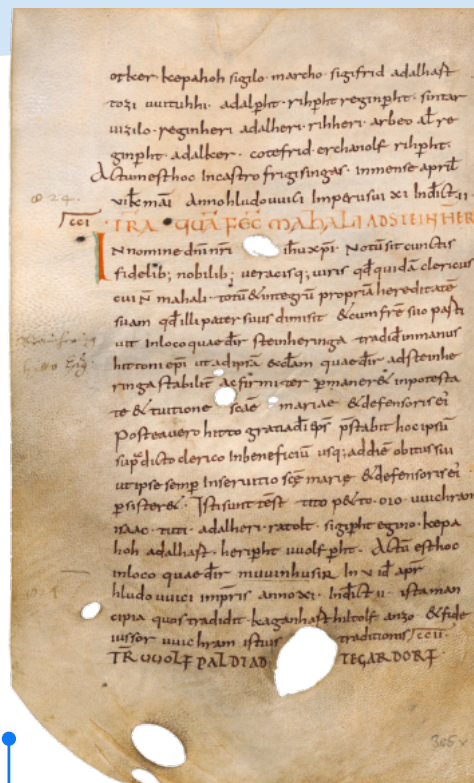 otker kepahoh sigilo · marcho · sigifrid adalhaft
tozi uuituhhi · adalpht · rihpht reginpht · sintar
uuzilo · reginheri adalheri · rihheri · arbeo al re
ginpht · adalker · cotefrid · erchanolf rihpht ·
Actum est hoc in castro frigisingas · in mense april
VII k mai anno hludouuici Imp xi Indict ii ·
824
cci TRA QUA FEC MAHALI AD STEINHER
IN nomine dni nri ihu xpi · Notu sit cunctis
fidelib; nobilib; veracisq; viris qd quida clericus
cui N mahali · totu & integru propria hereditate
suam qd illi pater suus dimisit & cum fre suo parti
uit In loco quae dir steinheringa tradid in manus
hittoni epi ut ad ipsa eccliam quae dir ad steinhe
ringa stabilit ac firmiter pmaner& in potesta
te & tuitione scae mariae & defensoris ei
Postea vero hitto gratia di eps pstabit hoc ipsu
sup dicto clerico In beneficiu usq; ad die obitus sui
ut ipse semp In servitio sce marie & defensoris ei
psister& · Isti sunt test tito p&to · oio · uuichram
isaac · tuti · adalheri · ratolt · sigipht egino · kepa
hoh adalhaft · heripht uuolfpht · Actu est hoc
in loco quae dir muuinhusir In v id apr
hludouuici impris anno xi · Indict ii · ista man
cipia quos tradidit kaganhaft hiltolf anzo & fide
iussor uuichram istius traditionis ccii
TR UUOLFPALDI AD TEGARDORF ·
305 v